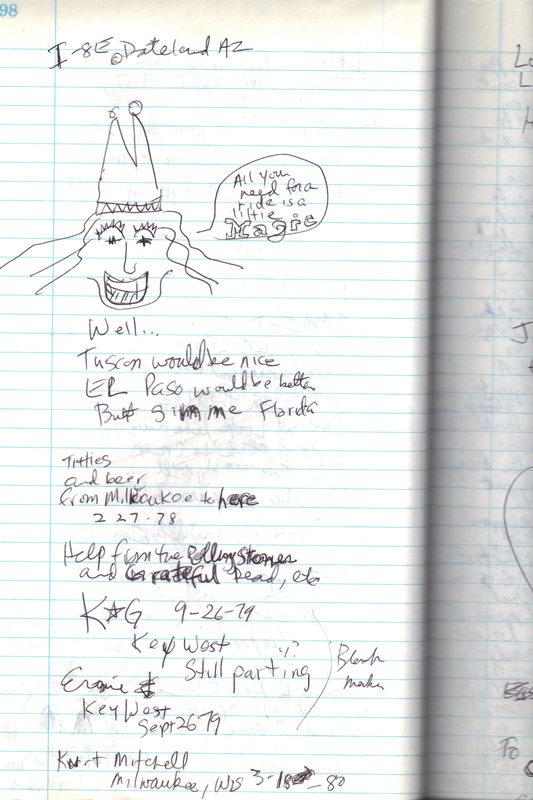 98
I-8E @ Dateland AZ
All you
need for a
ride is a
little
Magic
Well...
Tuscon would be nice
EL Paso would be better
But gimme Florida
Titties
and beer
from Milwaukee to here
2 27-78
Help from the Rolling Stones
and Grateful Dead, etc
K☆G 9-26-79
Key West
Still parting
Ernie
Key West
Sept 26 79
Kurt Mitchell
Milwaukee, Wis 3-18-80
To